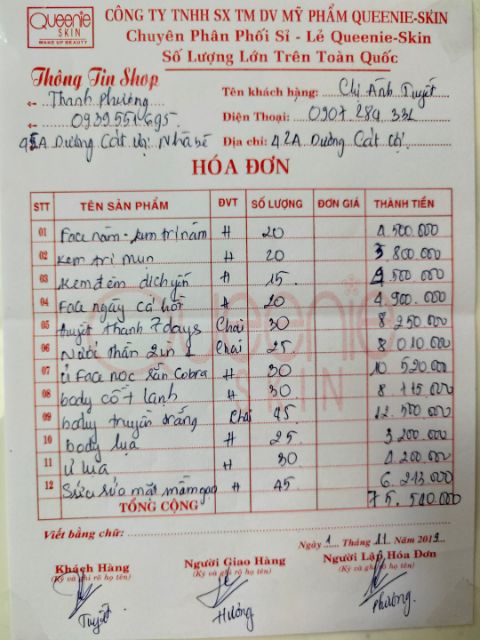 Queenie
SKIN
MAKE UP BEAUTY
CÔNG TY TNHH SX TM DV MỸ PHẨM QUEENIE-SKIN
Chuyên Phân Phối Sỉ - Lẻ Queenie-Skin
Số Lượng Lớn Trên Toàn Quốc
Thông Tin Shop
Thanh phương
Tên khách hàng: Chị Ánh Tuyết
Điện Thoại: 0907 284 331
Địa chỉ: 42A Đường Cát
HÓA ĐƠN
STT TÊN SẢN PHẨM ĐVT SỐ LƯỢNG ĐƠN GIÁ THÀNH TIỀN
01 Face nám - kem trị nám H 20 4.500.000
02 Kem trị mụn H 20 3.800.000
03 Kem đêm dịch yến H 15 4.500.000
04 Face ngày cá hồi H 20 4.900.000
05 huyết thanh 7 days Chai 30 8.250.000
06 Nước thần 2in1 Chai 25 8.010.000
07 ủ Face nọc rắn Cobra H 30 10.520.000
08 body cốt lạnh H 30
09 body truyền trắng Chai 45 12.500.000
10 body lụa H 25 3.200.000
11 ủ lụa H 30 4.200.000
12 Sữa rửa mặt mầm gạo H 45
TỔNG CỘNG
Viết bằng chữ:
Ngày 1 Tháng 11 Năm 2019
Khách Hàng Người Giao Hàng Người Lập Hóa Đơn
(Ký và ghi rõ họ tên) (Ký và ghi rõ họ tên) (Ký và ghi rõ họ tên)
Tuyết Hương Phương